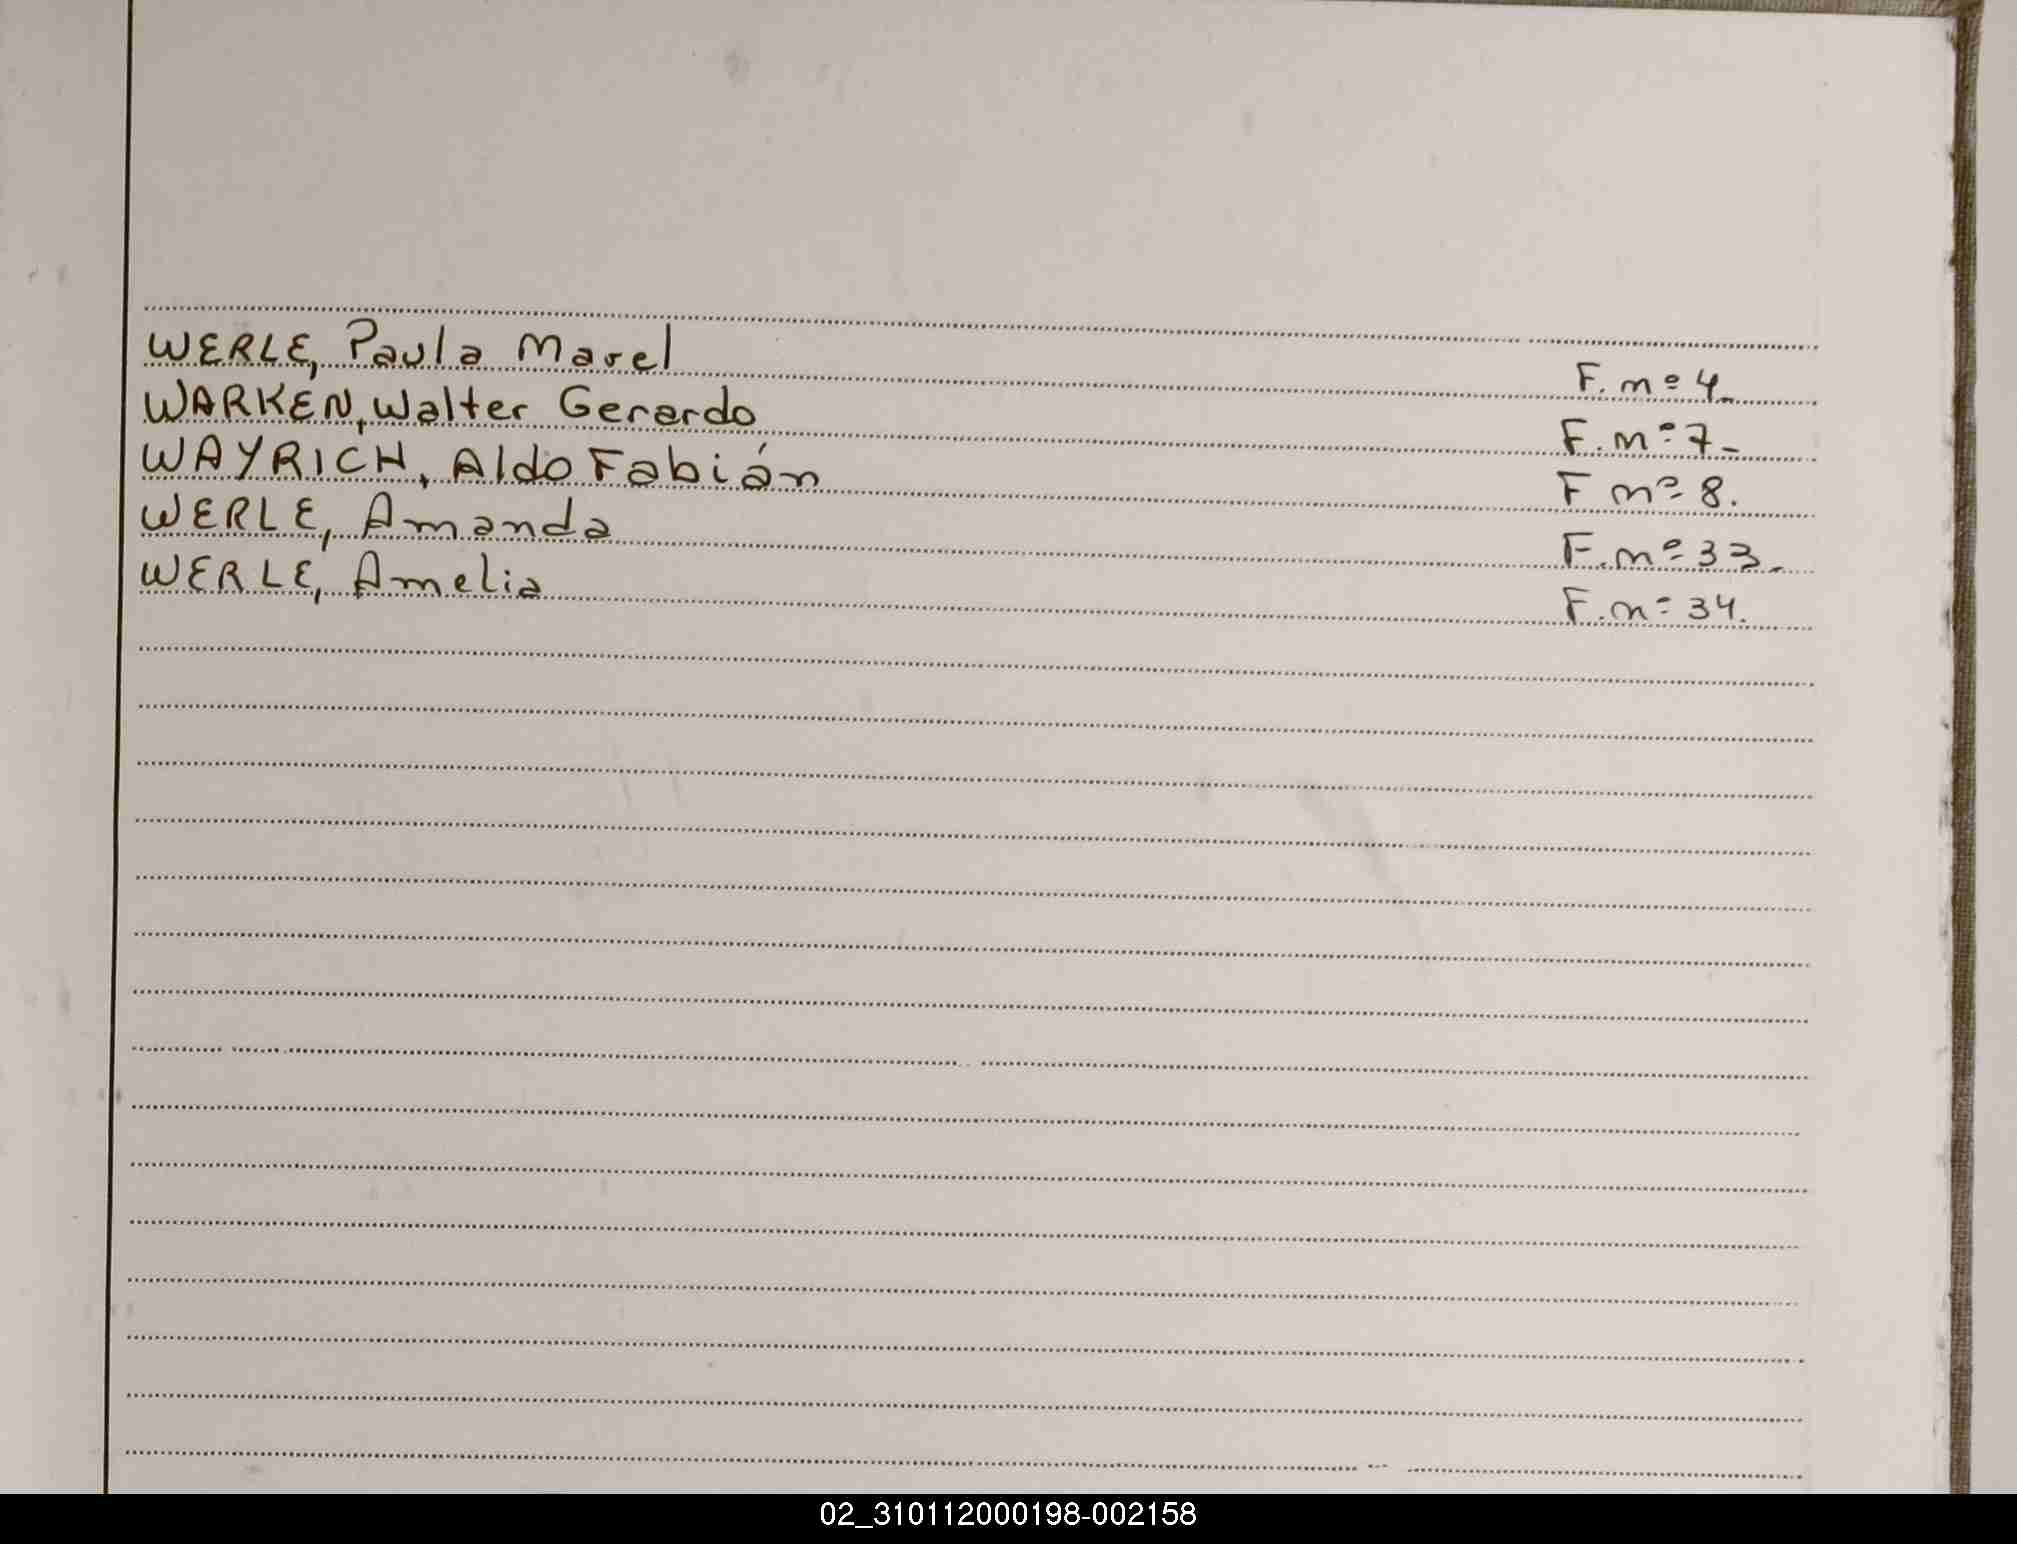 WERLE, Paula Marel F. nº 4_
WARKEN, Walter Gerardo F. nº 7_
WAYRICH, Aldo Fabián F nº 8.
WERLE, Amanda F. nº 33_
WERLE, Amelia F. nº 34.
02_310112000198-002158